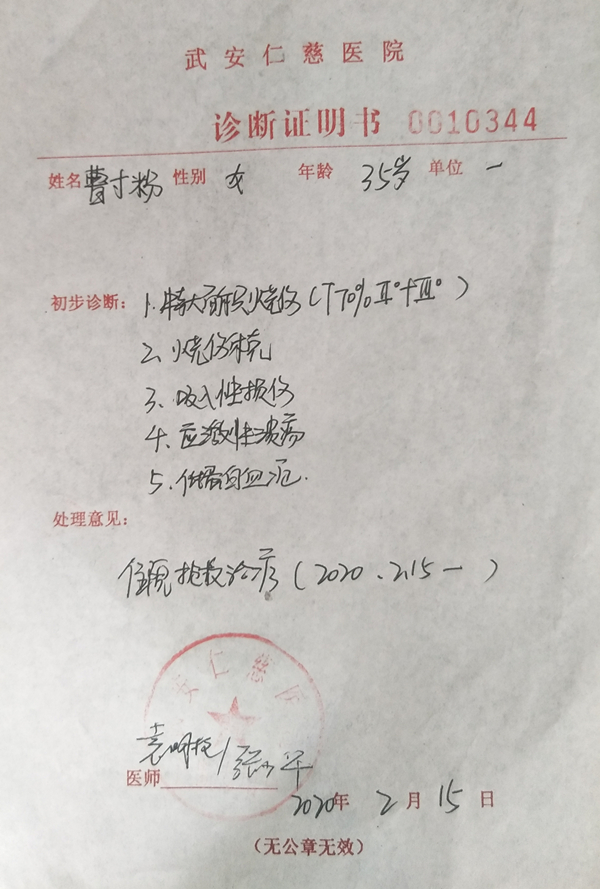 武安仁慈医院
诊断证明书 0010344
姓名 曹寸粉 性别 女 年龄 35岁 单位 一
初步诊断: 1.特大面积烧伤(T70% Ⅱ°+Ⅲ°)
2、烧伤休克
3、吸入性损伤
4、应激性溃疡
5、低蛋白血症.
处理意见:
住院抢救治疗(2020、2.15一)
武安仁慈医院
医师 袁明
2020年 2月15日
(无公章无效)